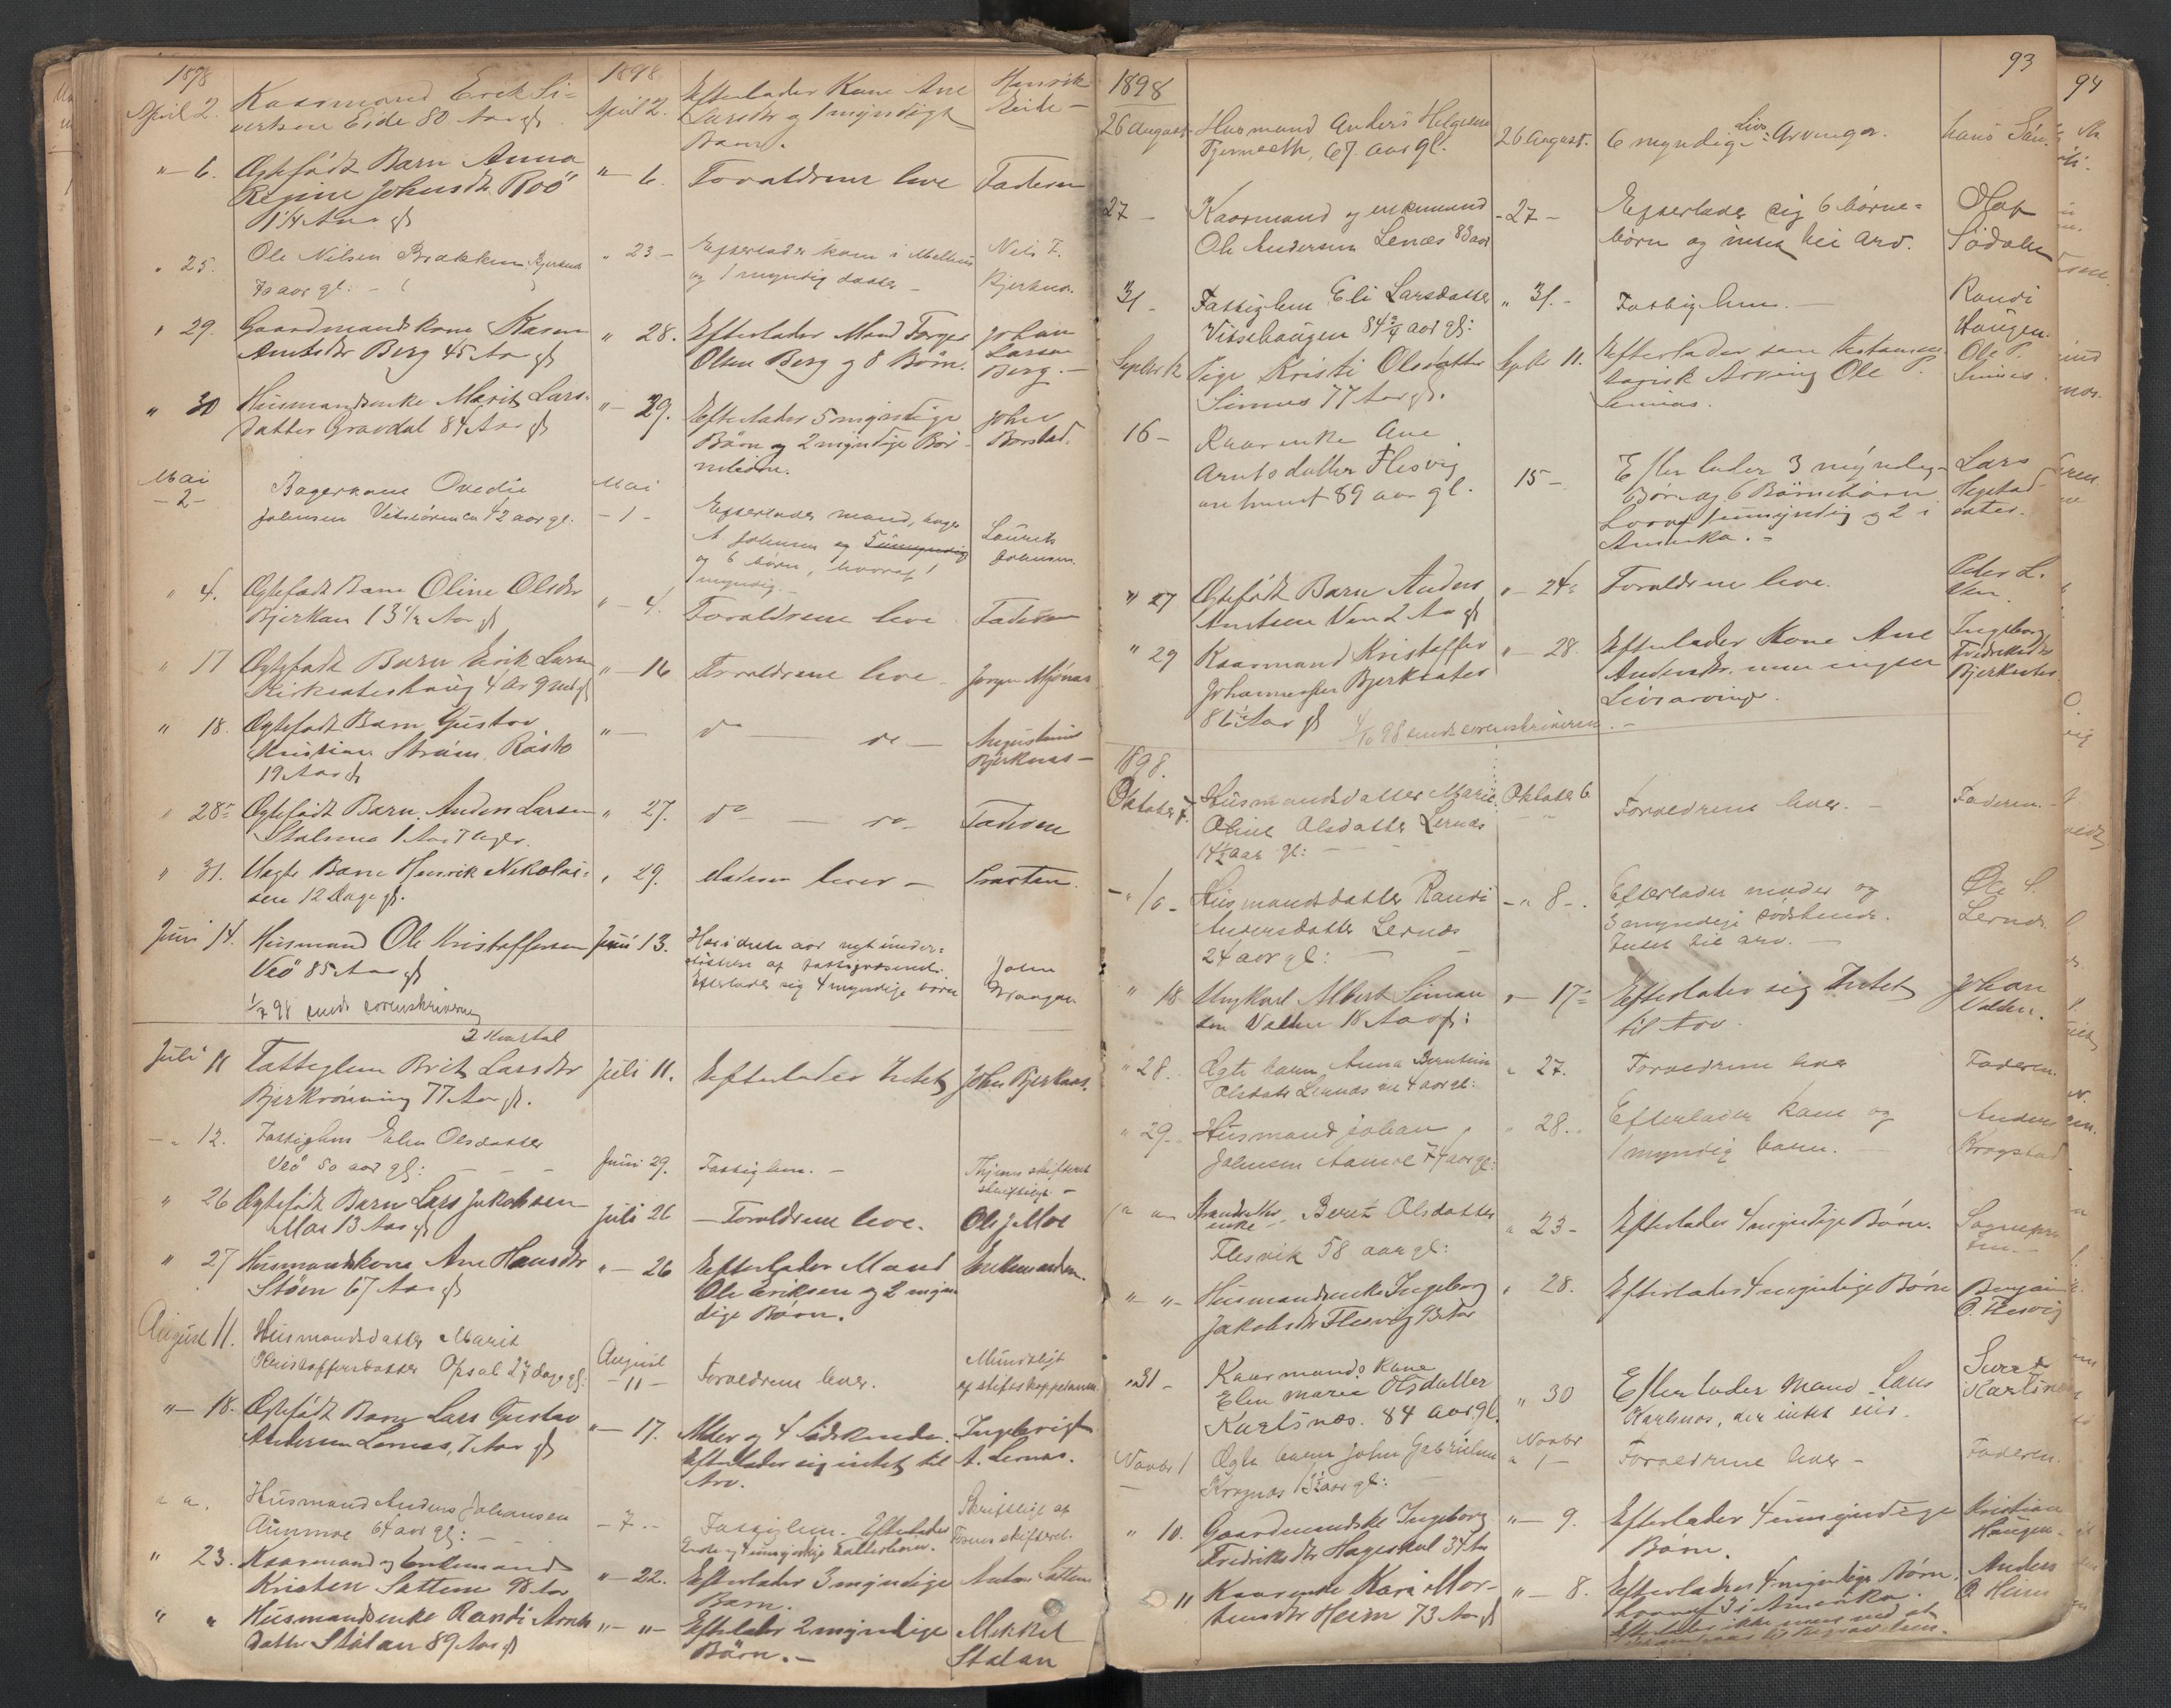 1898
April 2.
Kaarmand Erik Si=
vertsen Eide 80 Aar gl
1898
April 2.
Efterlader Kone Ane
Larsdtr og 1 myndigt
Barn.
Henrik
Eide —
"— 6.
Ægtefødt Barn Anna
Regine Johnsdtr Roö
1 1/4 Aar gl
"— 6.
Forældrene leve
Faderen
" 25.
Ole Nilsen Brækken
70 aar gl: —
" 23 —
Efterlader kone i Melhus
og 1 myndig datter —
Nils F.
Bjerknes.
" 29.
Gaardmandskone Karen
Arntsdtr Berg 45 Aar gl
" 28.
Efterlader Mand Torger
Olsen Berg og 8 Børn.
Johan
Larsen
Berg. —
" 30
Husmandsenke Marit Lars-
datter Gravdal 84 Aar gl
"— 29.
Efterlader 5 myndige
Børn og 2 myndige Bör-
nebörn.
John
Borstad.
Mai
— 2 —
Bagerkone Ovedie
Johnsen 42 aar gl.
Mai
— 1 —
Efterlader mand, bager
A Johnsen og
og 6 börn, hvoraf 1
myndig. —
Laurits
Johnsen.
" 4.
Ægtefødt Barn Oline Olsdtr
Bjerkan 13 1/2 Aar gl
"— 4.
Forældrene leve
Faderen
" 17
Ægtefødt Barn Erik Larsen
Kirksæterhaug 4 Ar 9 Md gl
"— 16
Forældrene leve —
Jørgen Mjönes
" 18.
Ægtefødt Barn Gustav
Kristian Ström, Röstö
19 Aar gl
"—
do — do —
Augustinus
Bjerknes —
" 28
Ægtefødt Barn Anders Larsen
Stølsnes 1 Aar 7 Uger.
" 27.
do — do —
Faderen
" 31.
Uægte Barn Henrik Nikolai-
sen 12 Dage gl.
" 29.
Moderen lever —
Præsten.
Juni 14.
Husmand Ole Kristoffersen
Veö 85 Aar gl
Juni 13.
Har i dette aar nydt under-
støttelse af fattigvæsenet.
Efterlader sig 4 myndige börn
John
Vaagan
1/7 98 sendt sorenskriveren
3 Kvartal
Juli 11
Fattiglem Brit Larsdtr
Bjerkrönning 77 Aar gl.
Juli 11.
Efterlader Intet
John Bjerknes.
— " 12.
Fattiglem Elen Olsdatter
Veö 50 aar gl: —
Juni 29.
Fattiglem. —
Hjem skifteret
skriftligt —
" 26
Ægtefødt Barn Lars Jakobsen
Moe 13 Aar gl
Juli 26
— Forældrene leve.
Ole J Moe
" 27
Husmandskone Ane Hansdtr
Stöen 67 Aar gl
"— 26
Efterlader Mand
Ole Eriksen og 2 myn
dige Börn.
Enkemanden.
August 11.
Husmandsdatter Marit
Kristoffersdatter Opsal 27 dage gl.
August
— 11 —
Forældrene lever.
Mundtligt
af stiftskappelanen
"— 18.
Ægtefødt Barn Lars Gustav
Andersen Lernes, 7 Aar gl
"— 17.
Moder og 4 Södskende.
Efterlader sig intet til
Arv.
Ingebrigt
A. Lernes.
" ".
Husmand Anders Johansen
Aunmoe 64 aar gl: —
— 7. —
Fattiglem. Efterlader
Enke og 4 umyndige Datterbørn.
Skriftlige af
skifteret.
" 23.
Kaarmand og Enkemand
Kristen Sættem 98 Aar
"— 22.
Efterlader 3 myndige
Barn.
Anton Sættem
" "
Husmandsenke Randi Arnts
datter Stölan 89 Aar gl
"— "—
Efterlader 2 myndige
Börn. —
Mikkel
Stølan
93
1898
26 August
Husmand Anders Helgesen
67 aar gl.
26 August.
6 myndige Livs-Arvinger.
hans Sön.
27 —
Kaarmand og enkemand
Ole Andersen Lenæs 83 aar
— 27 —
Efterlader sig 6 börne=
börn og intet til arv.
Olaf
Södahl
31 —
Fattiglem Eli Larsdatter
Vitsehaugen 84 3/4 aar gl:
" 31. —
Fattiglem. —
Randi
Haugen.
Septbr 12
Pige Kristi Olsdatter
Sinnes 77 Aar gl.
Septbr 11.
Efterlader som testamen-
tarisk Arving Ole P.
Sinnes.
Ole P.
Sinnes.
16 —
Kaarenke Ane
Arntsdatter Flesvig
89 aar gl.
15 —
Efterlader 3 myndig
Börn og 6 Börnebörn
hvoraf 1 umyndig og 2 i
Amerika. —
Lars
Hegstad
sæter.
" 27
Ægtefødt Barn Anders
Arntsen Ven 2 Aar gl
"— 24
Forældrene leve.
Peder L.
Ven
" 29
Kaarmand Kristoffer
Johannessen Bjerksæter
86 1/2 Aar gl
"— 28.
Efterlader Kone Ane
Andersdtr. men ingen
Livsarvinger.
Ingeborg
Fredriksdtr
Bjerksæter
4/10 98 sendt sorenskriveren. —
1898.
Oktober 7.
Husmandsdatter Marie
Oline Olsdatter Lernæs
14 1/2 aar gl: —
Oktober 6.
Forældrene lever. —
Faderen. —
— " 10 —
Husmandsdatter Randi
Andersdatter Lernæs
24 aar gl: —
— " 8 —.
Efterlader moder og
3 myndige södskende.
Intet til arv. —
Ole S.
Lernæs.
" 18
Ungkarl Albert Simon
sen Valden 18 Aar gl:
"— 17
Efterlader sig Intet
til Arv.
Johan
Valden.
" 28.
Ægte barn Anna Berntine
Olsdatr Lernæs 4 aar gl:
" 27.
Forældrene lever
Faderen.
" 29.
Husmand Johan
Johnsen Aamoe 74 aar gl:
" 28.
Efterlader kone og
1 myndig barn. —
Anders
Krogstad
" "
enke Beret Olsdatter
Flesvik 58 aar gl:
" 23 —
Efterlader 4 myndige Børn.
Sognepræ
sten. —
"— "—
Husmandsenke Ingeborg
Jakobsdtr Flesvig 93 Aar
" 28.
Efterlader 4 myndige Børn
Benjamin
O. Flesvig
" 31 —
Kaarmands Kone
Elen Marie Olsdatter
Karlsnæs. 84 aar gl.
" 30
Efterlader Mand Lars
Karlsnæs, der intet eier.
Sivert
Karlsnæs
Novbr 1
Ægte barn John Gabrielsen
Krognæs 1 1/2 aar gl:
Novbr
" 1 —
Forældrene lever —
Faderen.
" 10.
Gaardmandsk. Ingeborg
Fredriksdtr Hageskal 34 Aar
"— 9.
Efterlader 4 umyndige
Börn.
Kristian
Haugen.
" 11
Kaarenke Kari Mor-
tensdtr Heim 73 Aar gl
"— 8.
Efterlader 4 myndige börn,
hvoraf 3 i Amerika.
Efterlader ikke mere end at
til Begravelsen.
Anders
O. Heim
94